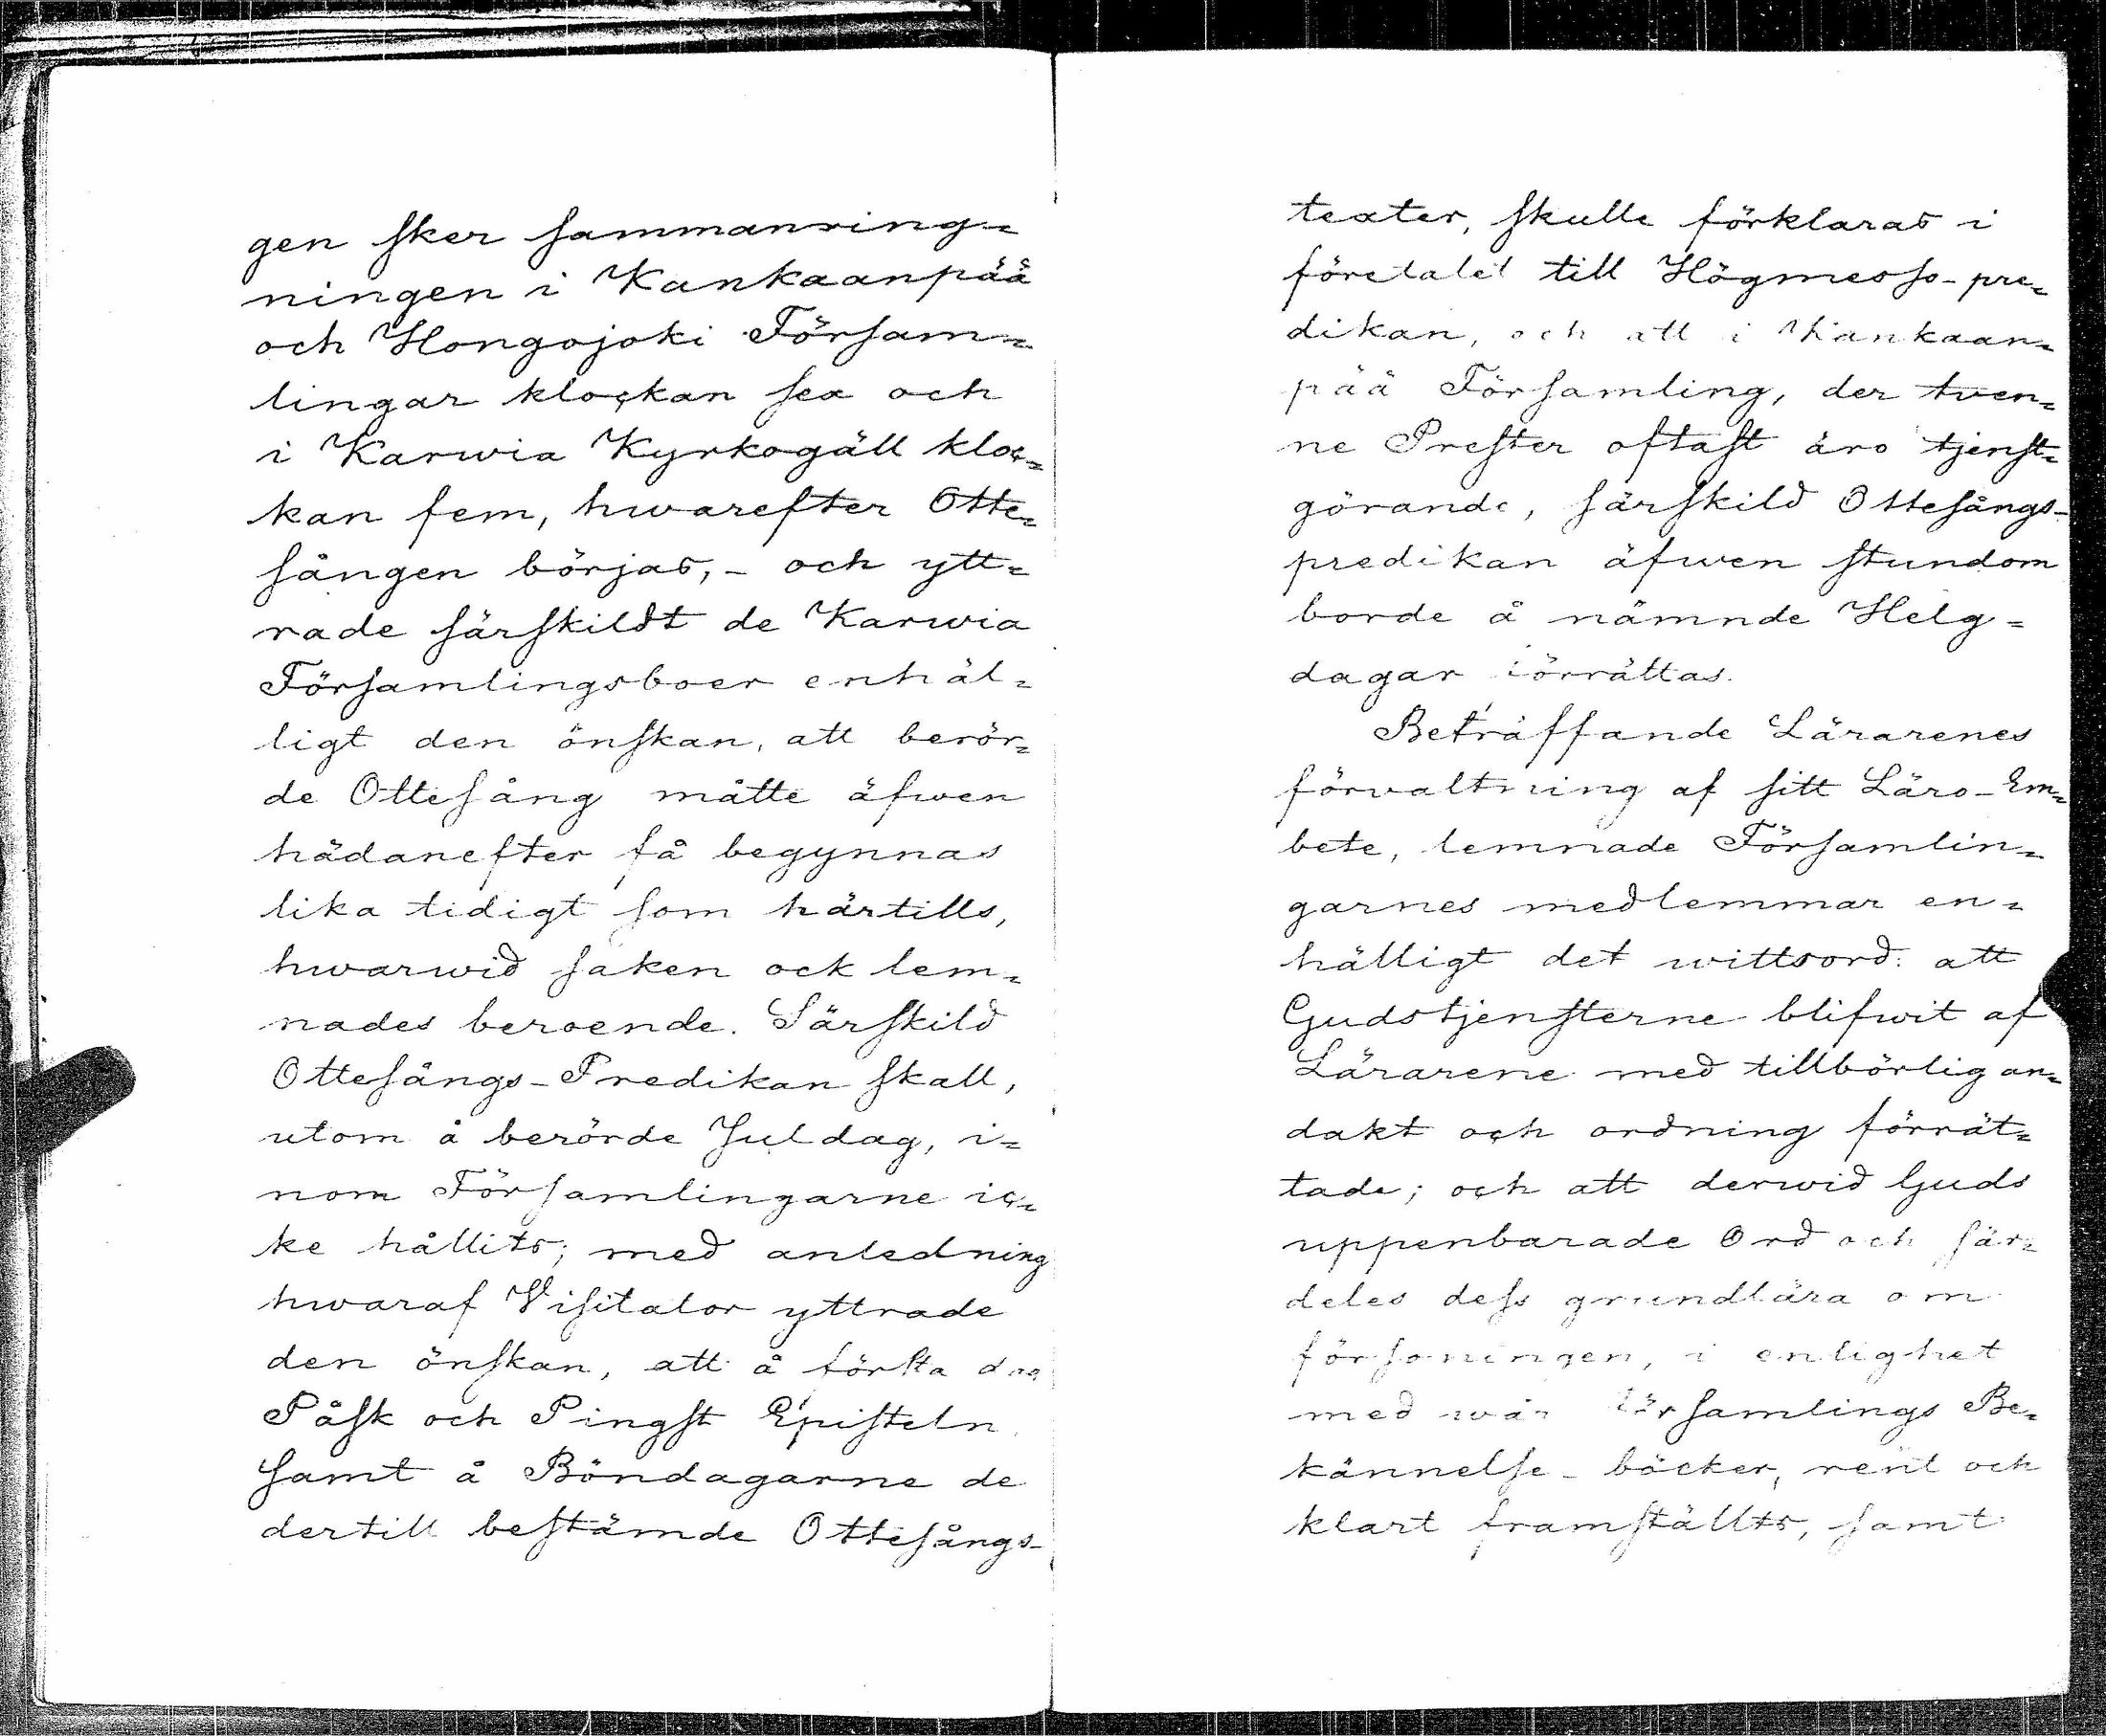 gen sker sammanring=
ningen i Kankaanpää
och Hongojoki Försam=
lingar klockan sex och
i Karwia Kyrkogäll kloc=
kan fem, hwarefter Otte=
sången börjas, - och ytt=
rade särskildt de Karwia
Församlingsboer enhäl=
ligt den önskan, att berör=
de Ottesång måtte äfwen
hädanefter få begynnas
lika tidigt som härtills,
hwarwid saken ock lem=
nades beroende. Särskild
Ottesångs-Predikan skall,
utom å berörde Juldag, i=
nom Församlingarne ic=
ke hållits; med anledning
hwaraf Visitator yttrade
den önskan, att å första dag
Påsk och Pingst Episteln
samt å Böndagarne de
dertill bestämde Ottesångs-
texter, skulle förklaras i
företalet till Högmesso-pre=
dikan, och att i Kankaan=
pää Församling, der twen=
ne Prester oftast äro tjenst=
görande, särskild Ottesångs-
predikan äfwen stundom
borde å nämnde Helg=
dagar förrättas.
Beträffande Lärarenes
förvaltning af sitt Läro-Em=
bete, lemnade Församlin=
garnes medlemmar en=
hälligt det wittsord: att
Gudstjensterne blifwit af
Lärarene med tillbörlig an=
dakt och ordning förrät=
tade; och att derwid Guds
uppenbarade Ord och sär=
deles dess grundlära om
försoningen, i enlighet
med wår Församlings Be=
kännelse-böcker, rent och
klart framställts, samt